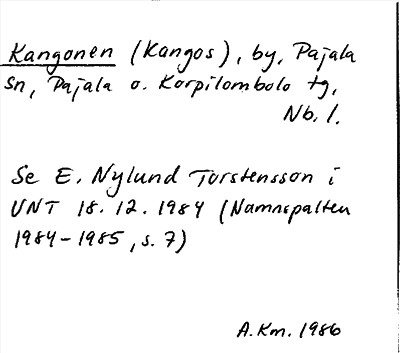 Kangonen (Kangos), by, Pajala
Sn, Pajala o. Korpilombolo tg,
Nb. l.
Se E. Nylund Torstensson i
UNT 18.12.1984 (Namnspalten
1984-1985, s. 7)
A.Km. 1986